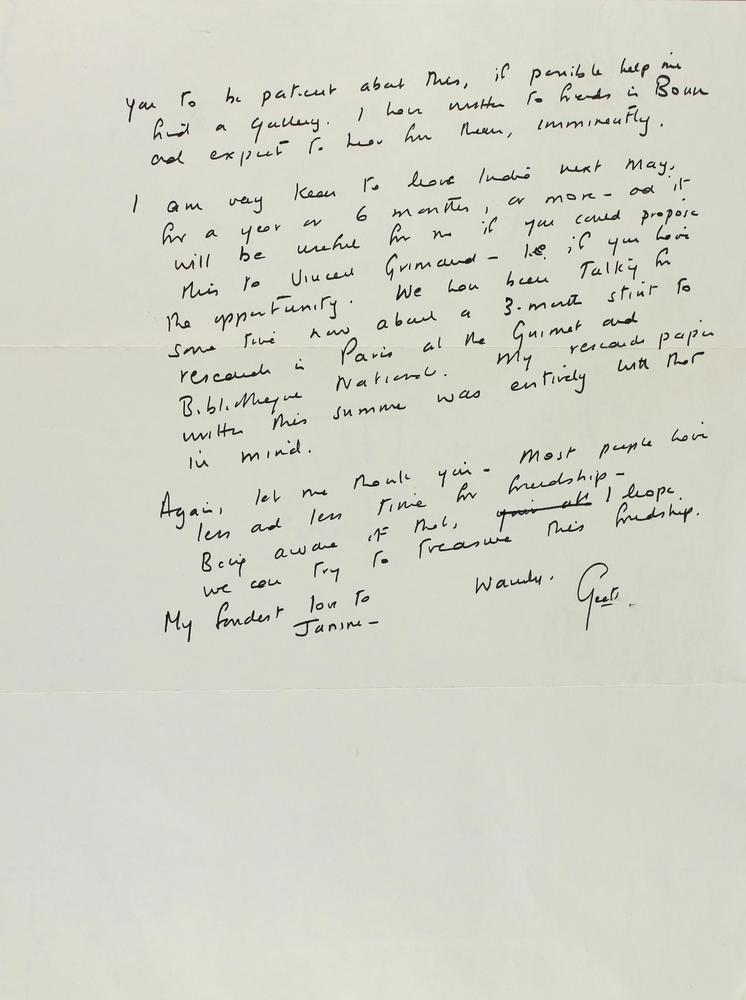 you to be patient about this, if possible help me
find a gallery. I have written to friends in Bonn
and expect to hear from them, imminently.
I am very keen to leave India next May,
for a year or 6 months, or more – and it
will be useful for me if you could propose
this to Vincent Grimaud – if you have
the opportunity. We have been talking for
some time now about a 3-month stint to
research in Paris at the Guimet and
Bibliotheque National. My research paper
written this summer was entirely with that
in mind.
Again, let me thank you – Most people have
less and less time for friendship –
Being aware of that, your all I hope
we can try to treasure this friendship.
My fondest love to
Janine –
Warmly.
Geeta.